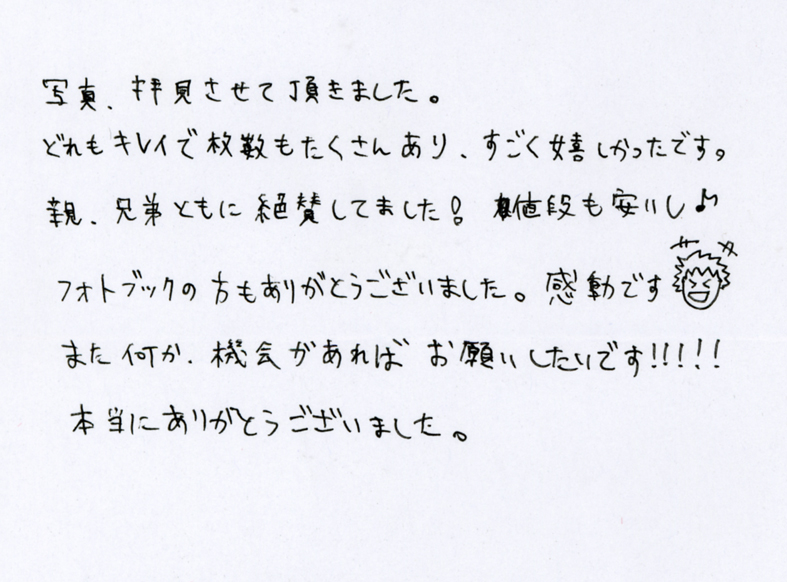 写真、拝見させて頂きました。
どれもキレイで枚数もたくさんあり、すごく嬉しかったです。
親、兄弟ともに絶賛してました！値段も安いし♪
フォトブックの方もありがとうございました。感動です
また何か、機会があればお願いしたいです!!!!!
本当にありがとうございました。